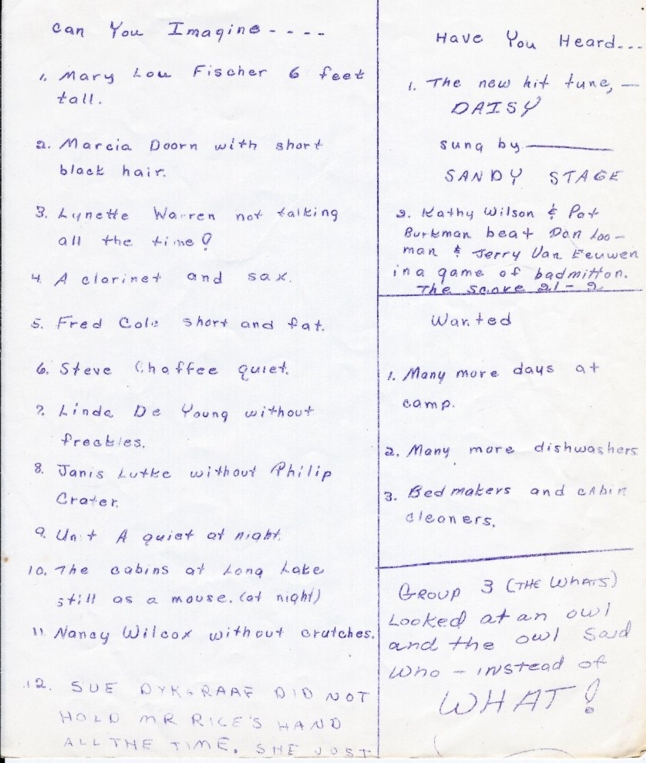 Can You Imagine----
1. Mary Lou Fischer 6 feet
tall.
2. Marcia Doorn with short
black hair.
3. Lynette Warren not talking
all the time!
4. A clarinet and sax.
5. Fred Cole short and fat.
6. Steve Chaffee quiet.
7. Linda De Young without
freckles.
8. Janis Lutke without Philip
Crater.
9. Unit A quiet at night.
10. The cabins at Long Lake
still as a mouse. (at night)
11. Nancy Wilcox without crutches.
12. SUE DYKGRAAF DID NOT
HOLD MR RICE'S HAND
ALL THE TIME. SHE JUST
Have You Heard...
1. The new hit tune, —
DAISY
sung by ———
SANDY STAGE
2. Kathy Wilson & Pat
Burkman beat Don Loo-
man & Jerry Van Eeuwen
in a game of badmitton.
The score 21-2
Wanted
1. Many more days at
camp.
2. Many more dishwashers
3. Bedmakers and cabin
cleaners.
GROUP 3 (THE WHATS)
Looked at an owl
and the owl said
Who - instead of
WHAT!